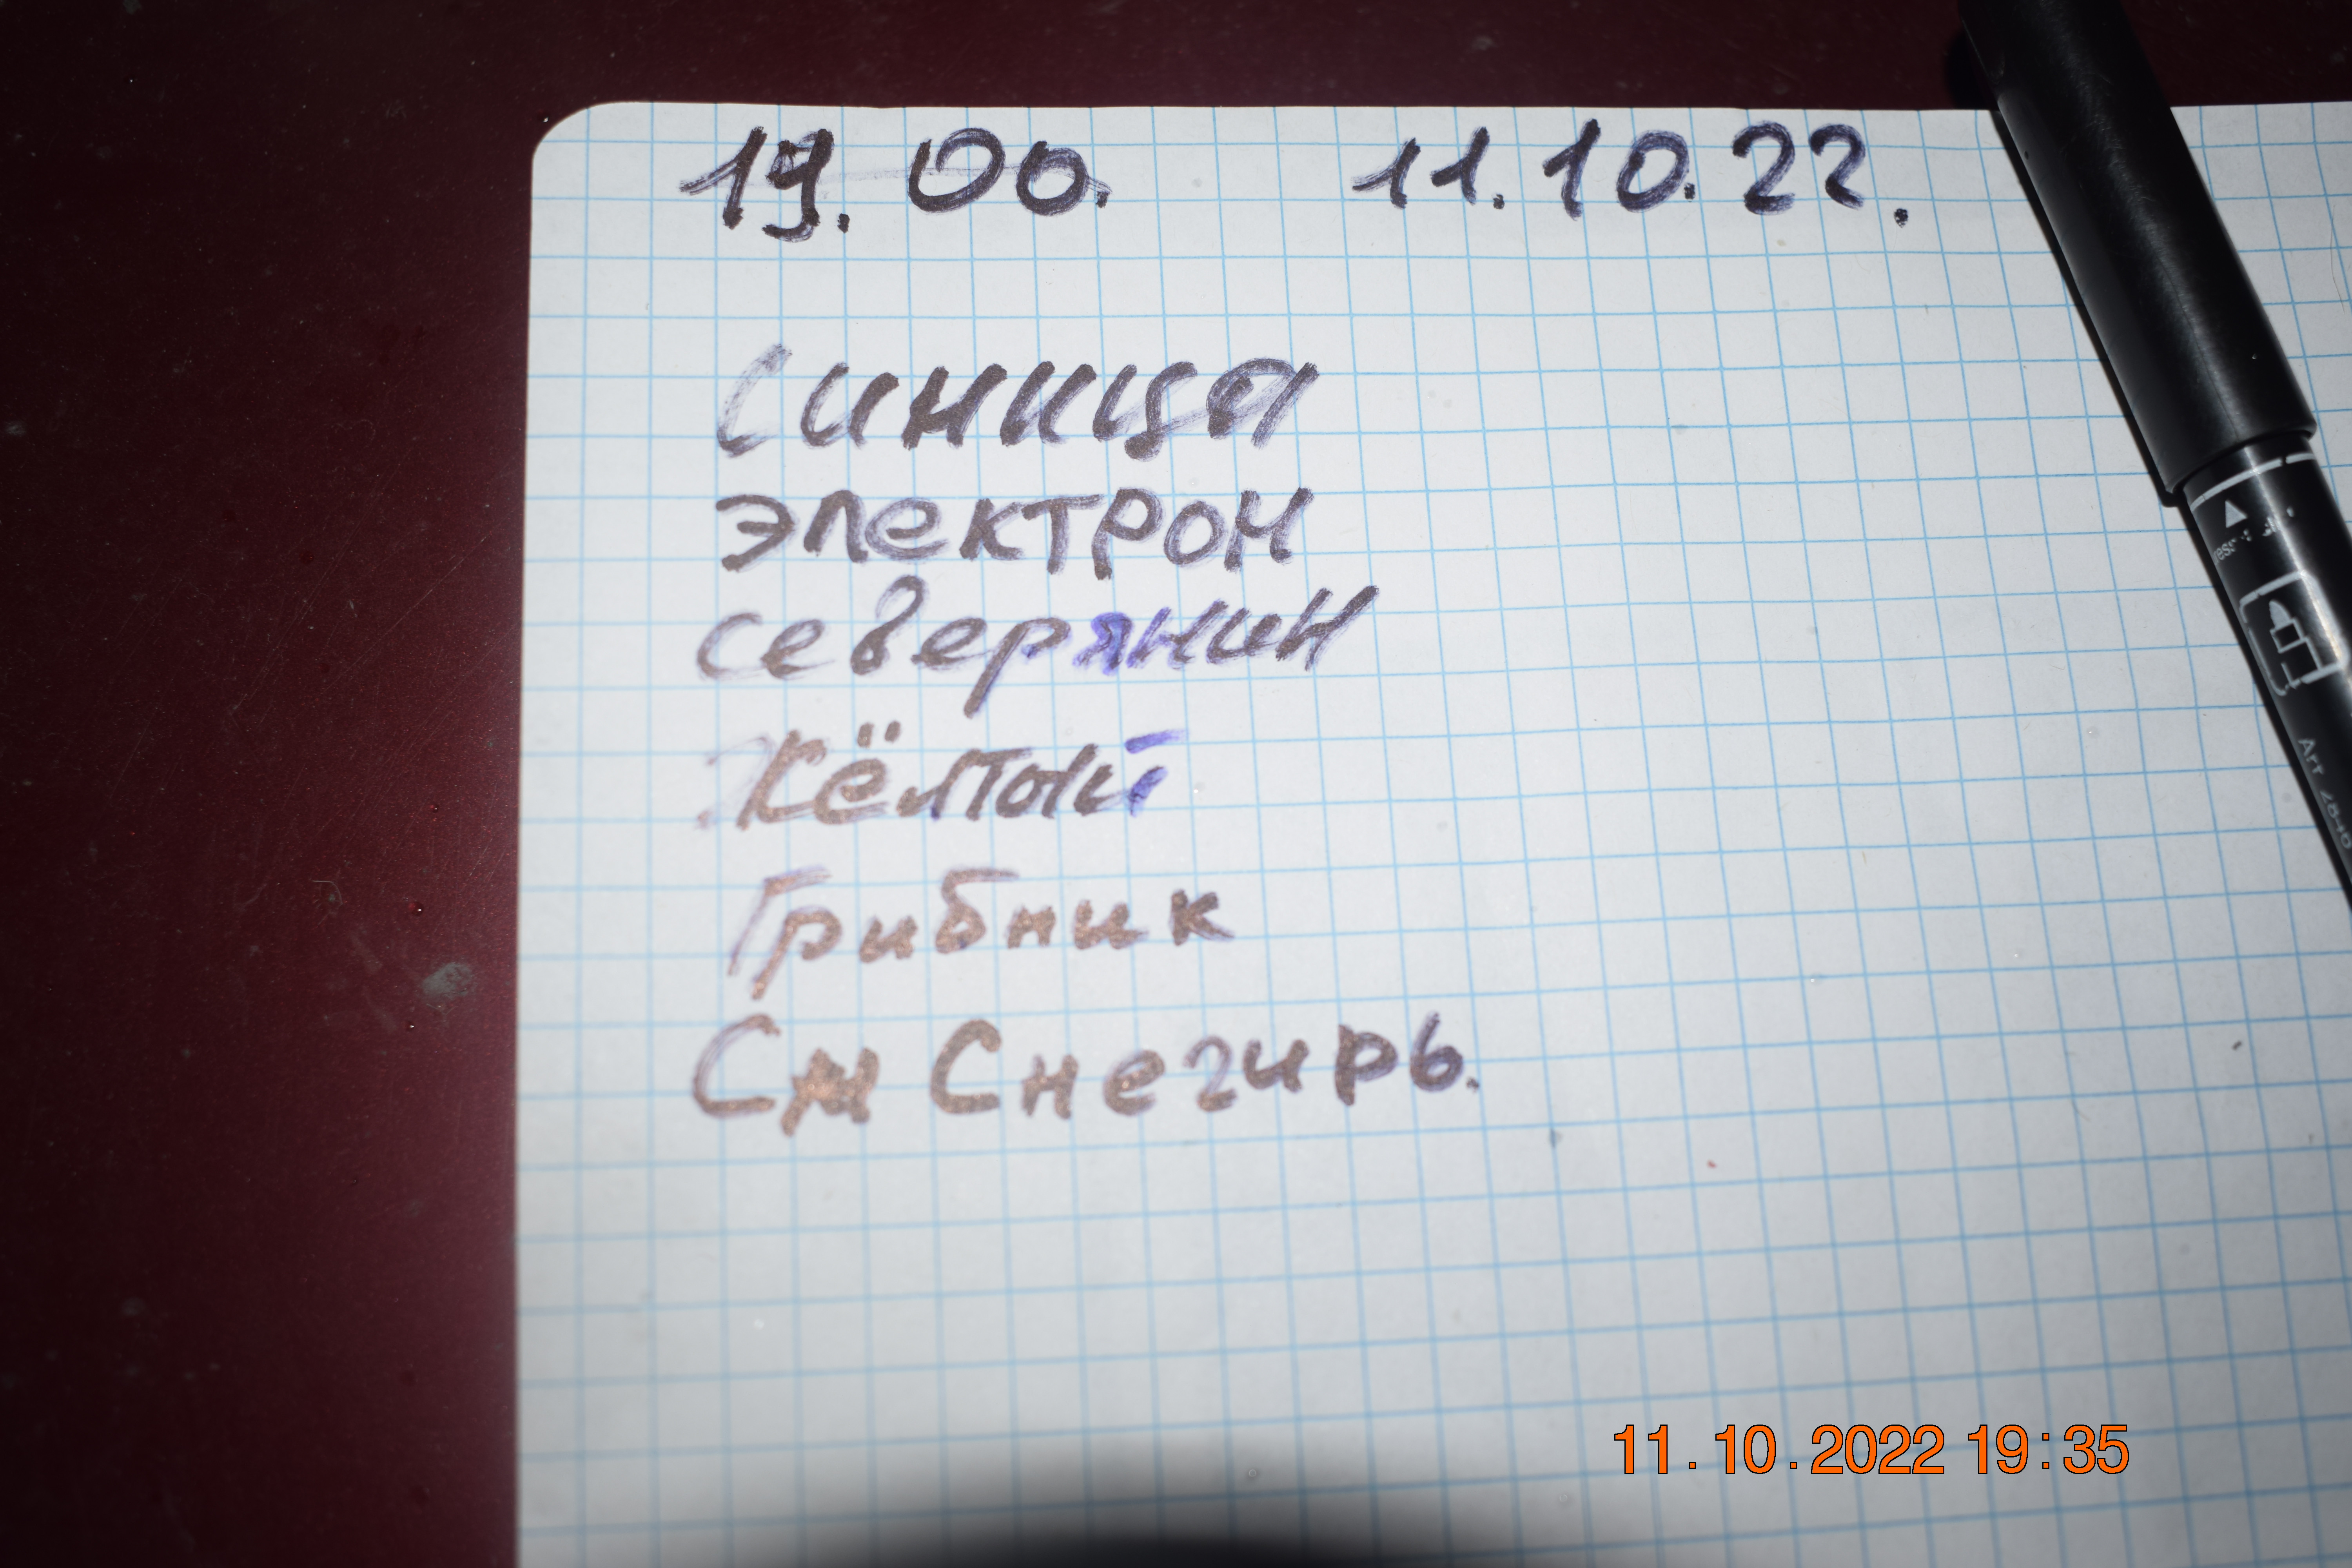 19.00. 11.10.22.
Синица
электрон
северянин
Жёлтый
Грибник
Сн Снегирь.
11.10.2022 19:35